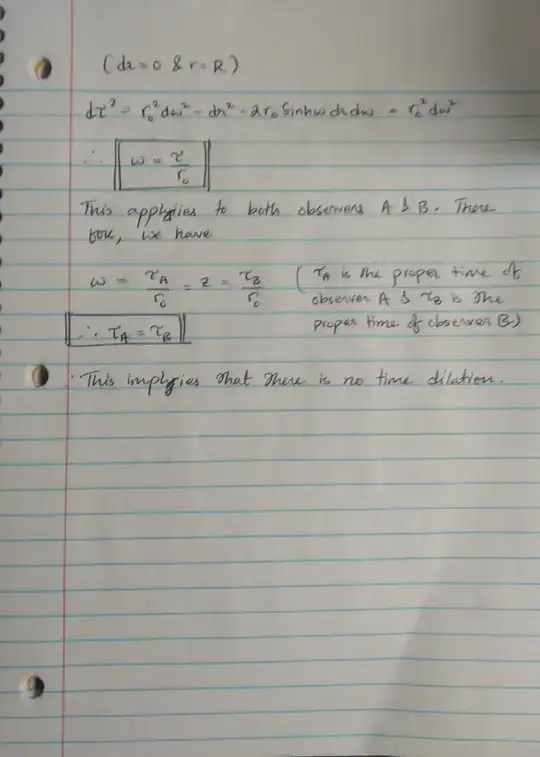 (dz = 0 & r = R)
dτ² = r₀²dω² - dz² - 2r₀ Sinhω dz dω = r₀²dω²
∴ ω = τ/r₀
This applyies to both observers A & B. There
fore, we have
ω = τA/r₀ = 2 = τB/r₀ (τA is the proper time of
observer A & τB is the
∴ τA = τB proper time of observer B.)
∴ This implyies that there is no time dilation.